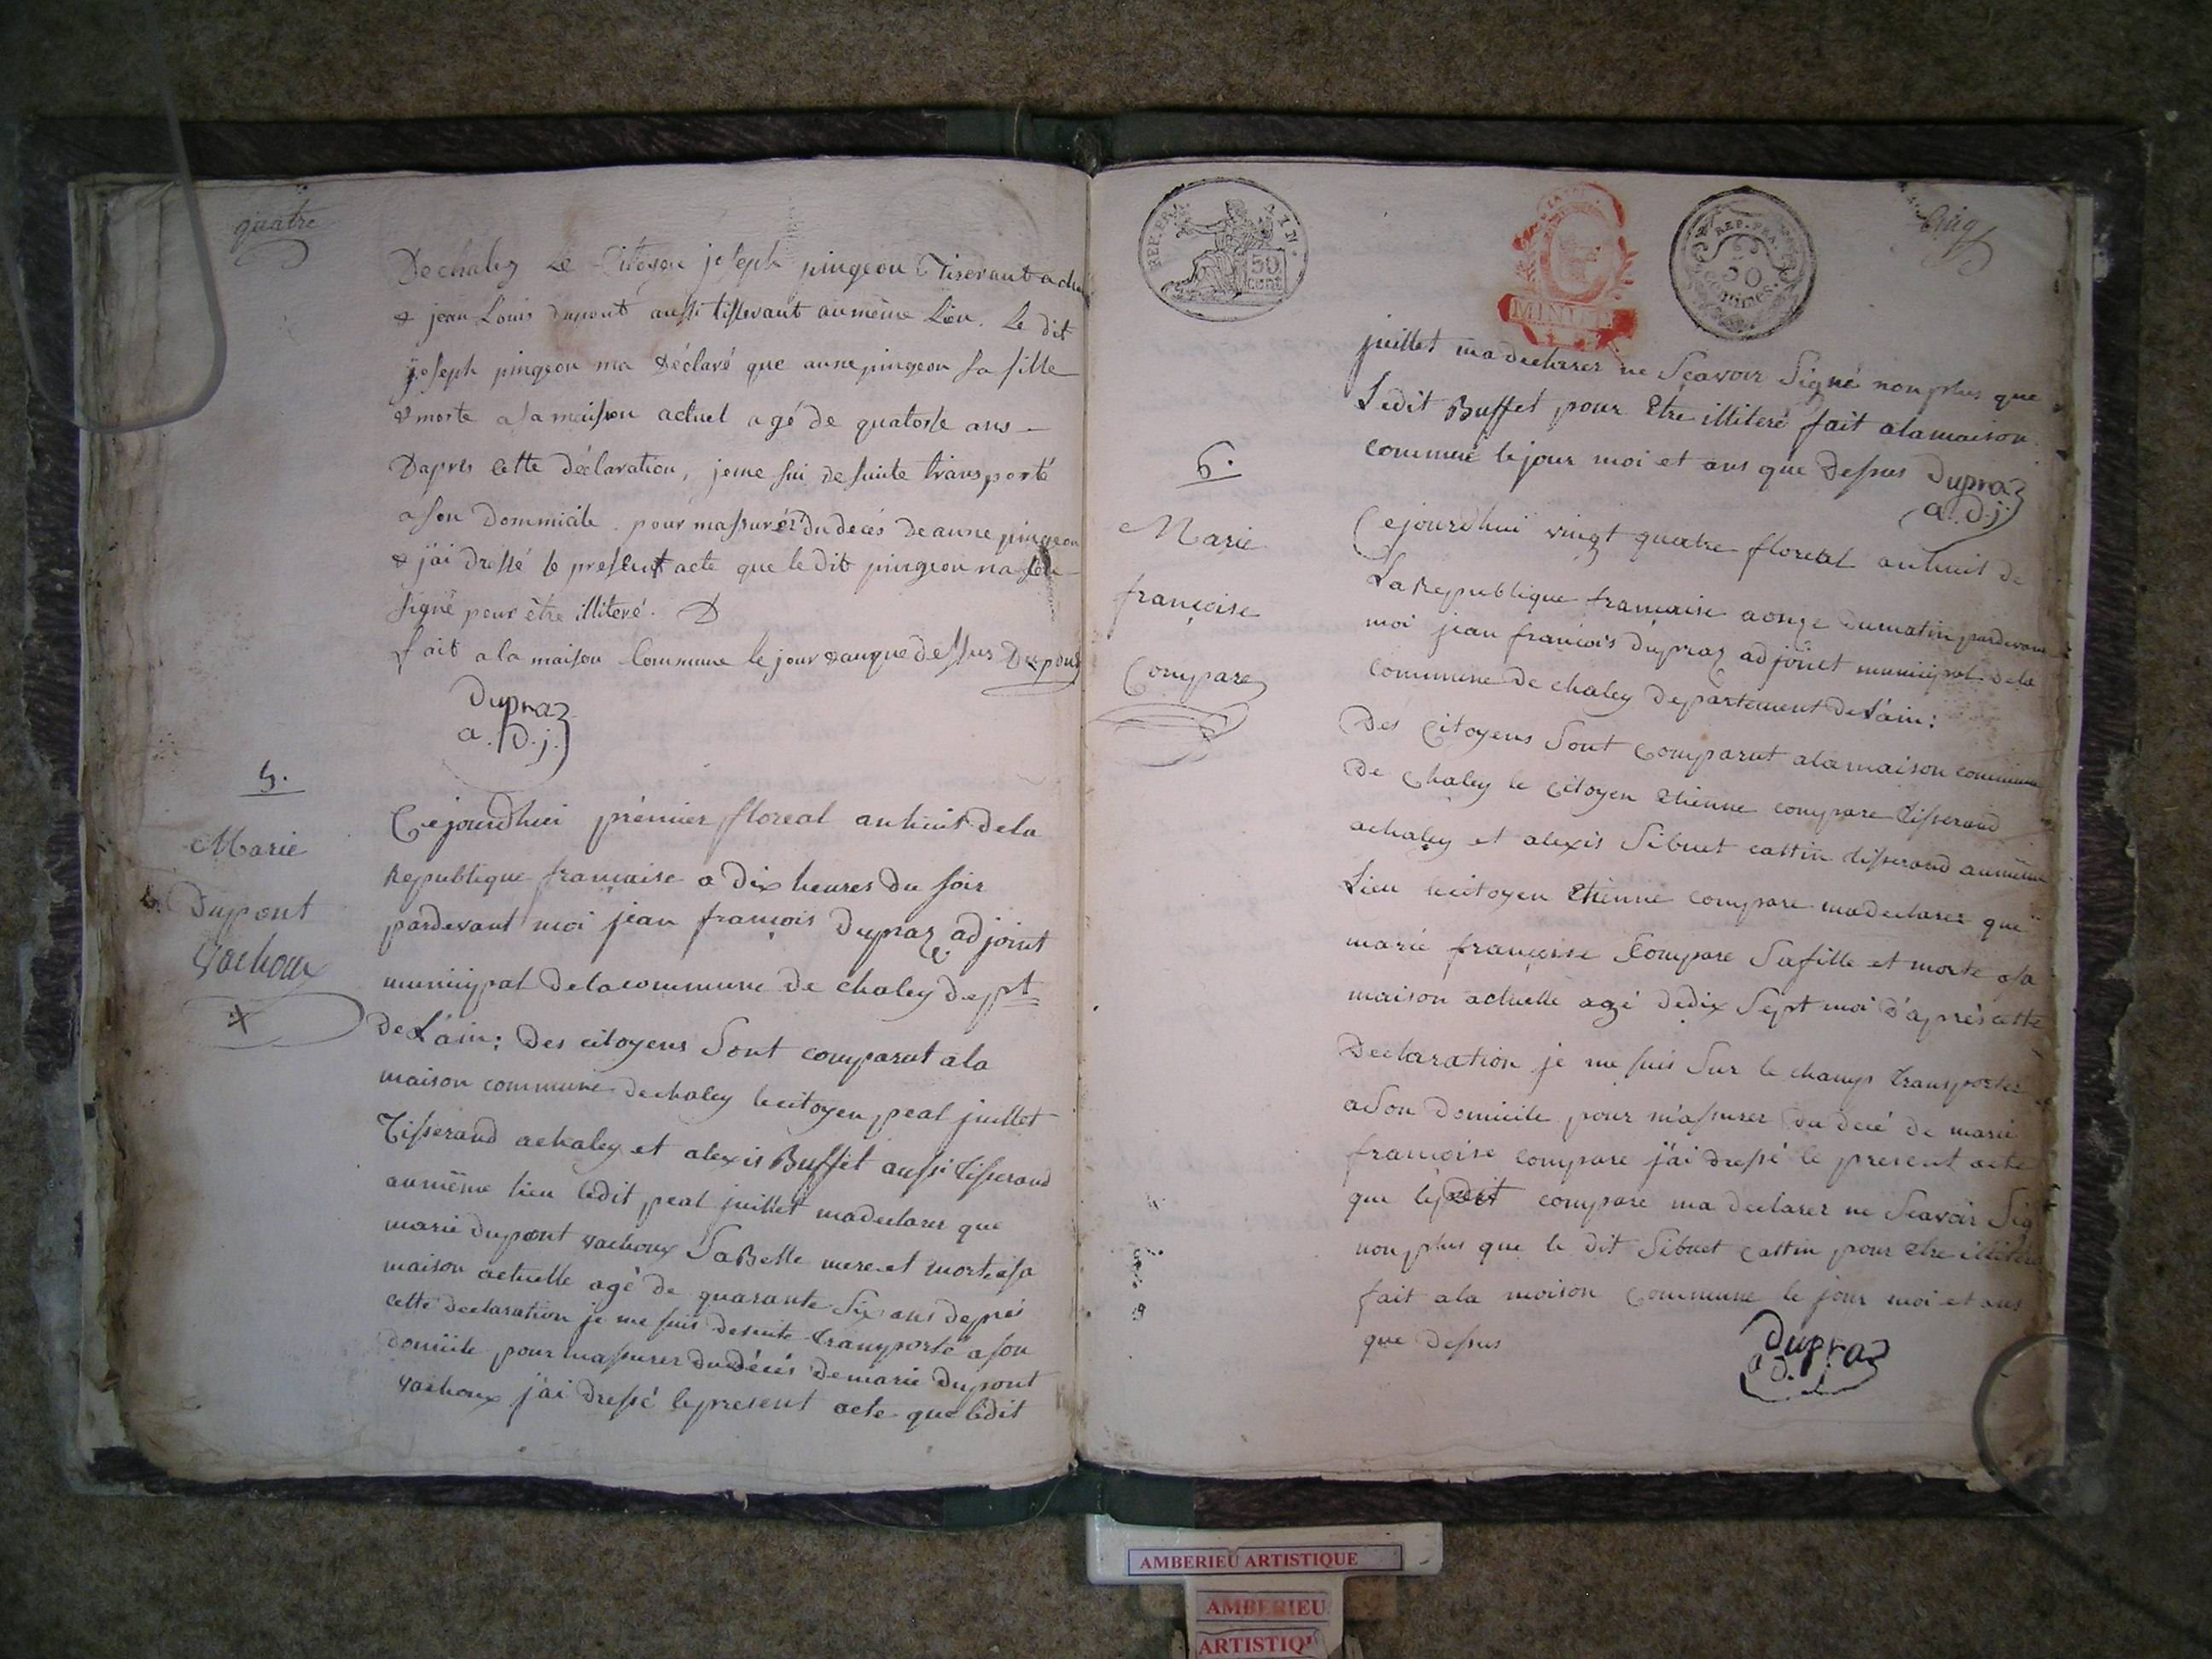 quatre
De chaley Le Citoyen joseph pingeon Tiserant a
& jean Louis dupont aussi tisserant au même Lieu. Le dit
joseph pingeon ma Déclaré que anne pingeon sa fille
& morte a sa maison actuel agé de quatorse ans
Dapres cette déclaration, jeme sui de suite transporté
a son dommicile pour massurér du decés de anne pingeon
& j'ai dressé le present acte que le dit pingeon na
signé pour être illiteré.
fait a la maison Commune le jour & an que dessus Dupont
Dupraz
a. D. j.
5.
Marie
Dupont
Vachoux
Cejourdhui prémier floreal an huit dela
Republique francaise a dix heures du soir
pardevant moi jean françois Dupraz adjoint
municipal dela commune de chaley dept
de L'ain: Des citoyens Sont comparut ala
maison commune dechaley le citoyen peal juillet
Tisserand achaley et alexis Buffet aussi tisserand
au même lieu ledit peal juillet madeclarer que
marie dupont vachoux Sa Belle mere et morte a sa
maison actuelle agé de quarante Six ans depres
cette declaration je me suis desuite transporté a son
domicile pour massurer du décés de marie Dupont
vachoux j'ai dressé le present acte que ledit
REP. FRA.
50
cent
MINUTE
REP. FRA.
50
centimes
Cinq
juillet ma declarer ne Sçavoir Signé non plus que
Ledit Buffet pour Etre illiteré fait ala maison
commune le jour moi et ans que Dessus Dupraz
a. D. j.
6.
Marie
françoise
Compare
Cejourdhui vingt quatre floreal an huit de
La Republique francaise a onze du matin pardevant
moi jean francois dupraz adjoint municipal dela
commune De chaley Departement de L'ain:
Des Citoyens Sont Comparut ala maison commune
De Chaley le Citoyen Etienne compare tisserand
achaley et alexis Sibuet cattin tisserand au même
Lieu le citoyen Etienne compare ma declarer que
marie françoise Compare Sa fille et morte a sa
maison actuelle agé de dix Sept moi d'aprés cette
Declaration je me suis Sur le champ transporter
a Son Domicile pour m'assurer du decé de marie
francoise compare j'ai dressé le present acte
que ledit compare ma declarer ne Scavoir Sig
non plus que le dit Sibuet Cattin pour Etre illiteré
fait ala maison Commune le jour moi et ans
que dessus
Dupraz
a D. j.
AMBERIEU ARTISTIQUE
AMBERIEU
ARTISTIQU